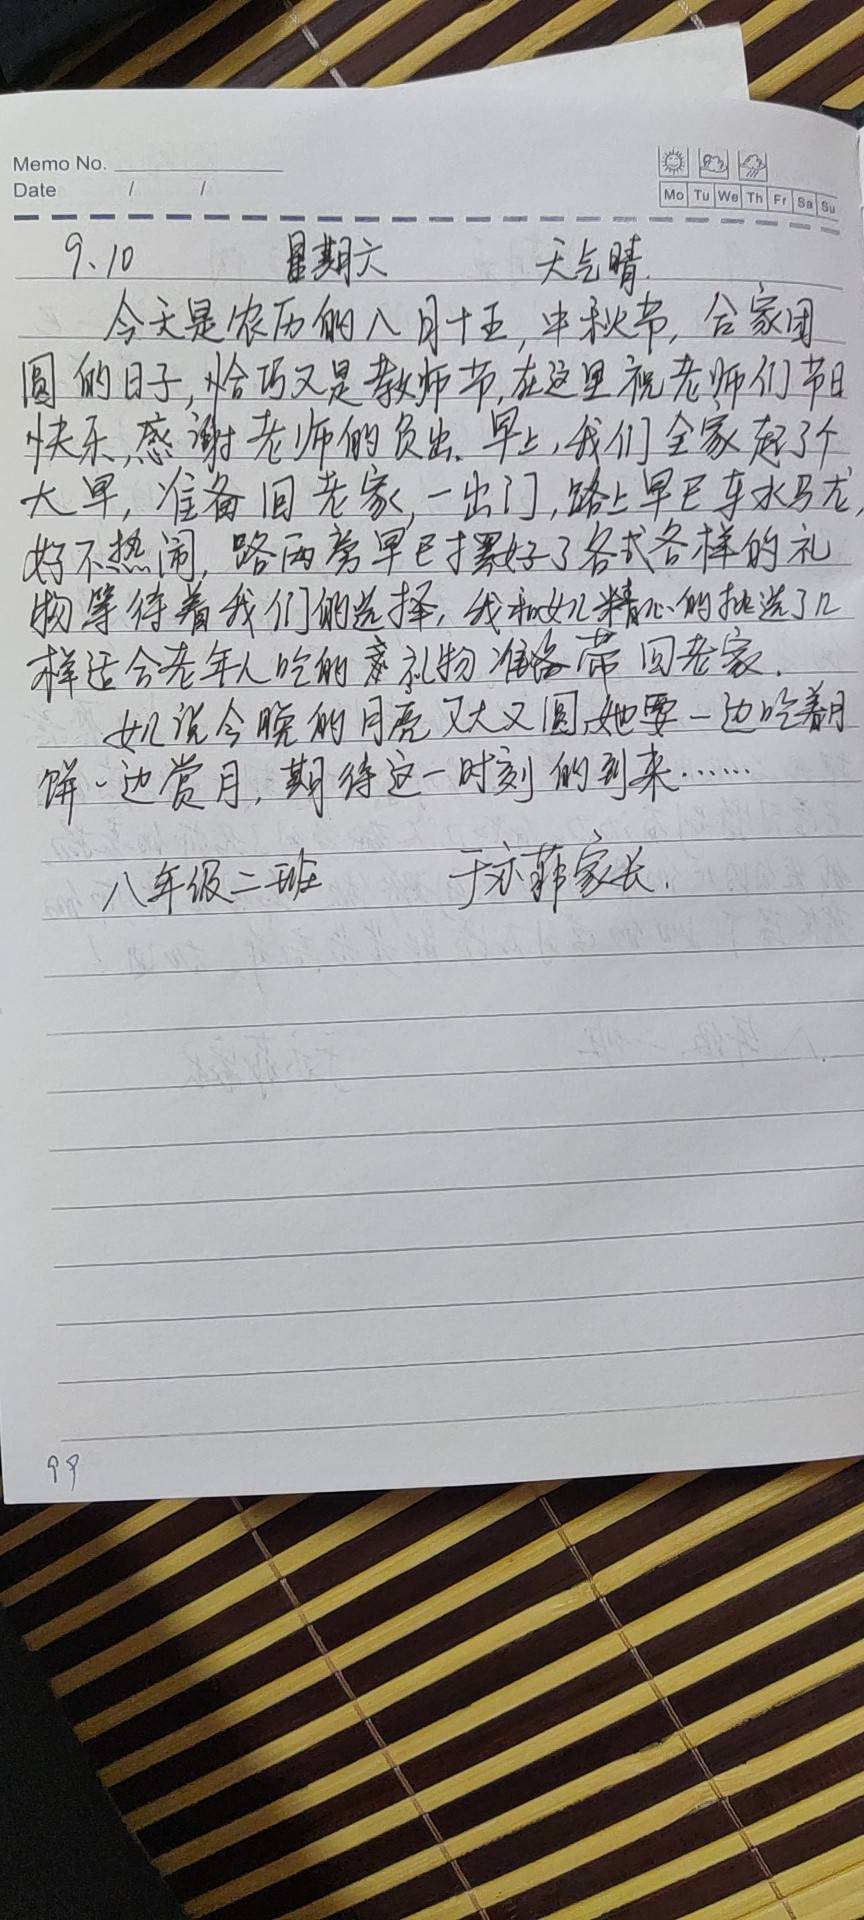 Memo No.
Date / /
Mo Tu We Th Fr Sa Su
9、10 星期六 天气晴.
今天是农历的八月十五,中秋节,合家团
圆的日子,恰巧又是教师节,在这里祝老师们节日
快乐,感谢老师的负出.早上,我们全家起了个
大早,准备回老家,一出门,路上早已车水马龙,
好不热闹,路两旁早已摆好了各式各样的礼
物等待着我们的选择,我和女儿精心的挑选了几
样适合老年人吃的礼物准备带回老家.
女儿说今晚的月亮又大又圆,她要一边吃着月
饼一边赏月,期待这一时刻的到来……
八年级二班 于亦菲家长.